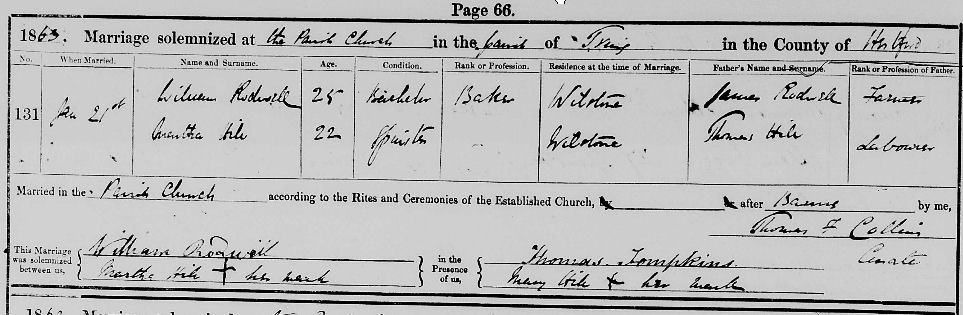 Page 66.
1863. Marriage solemnized at the Parish Church in the parish of Tring in the County of Hertford
No. When Married. Name and Surname. Age. Condition. Rank or Profession. Residence at the time of Marriage. Father's Name and Surname. Rank or Profession of Father.
131 Jan 21st William Rodwell 25 Bachelor Baker Wilstone James Rodwell Farmer
Martha Hill 22 Spinster Wilstone Thomas Hill Labourer
Married in the Parish Church according to the Rites and Ceremonies of the Established Church, by after Banns by me,
Thomas F Collins
Curate
This Marriage was solemnized between us, William Rodwell in the Presence of us, Thomas Tompkins
Martha Hill + her mark Mary Hill + her mark